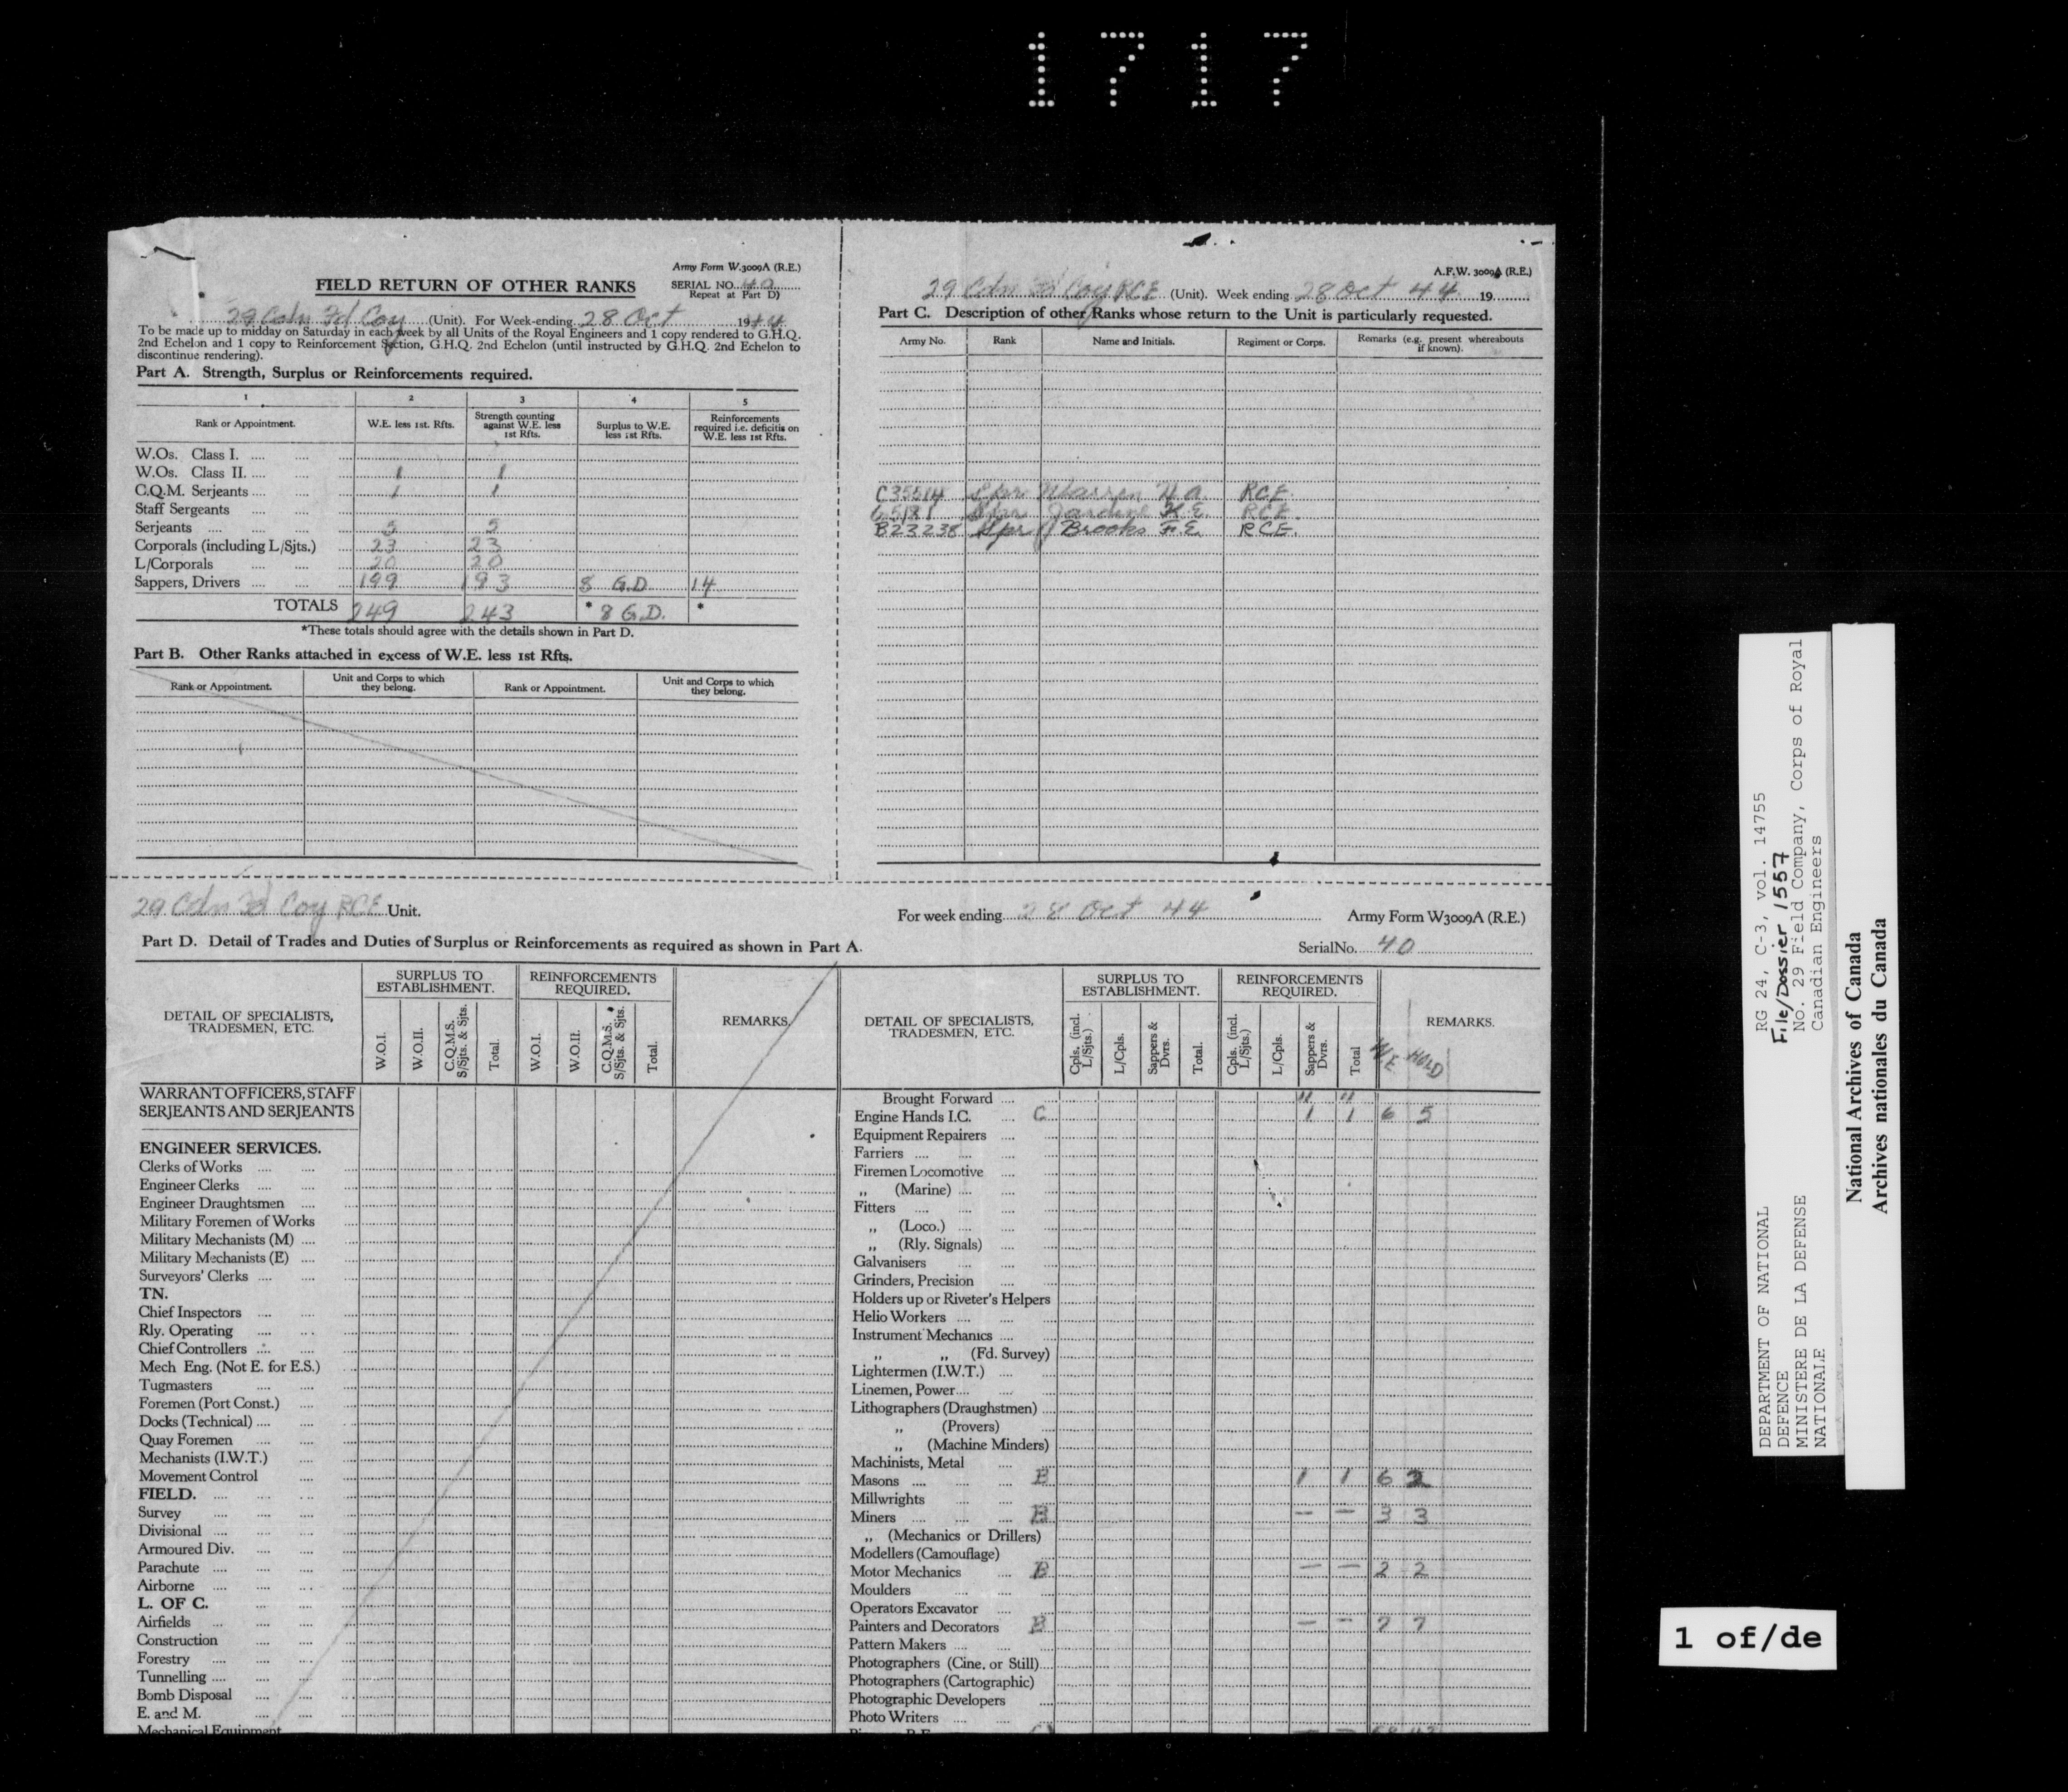 1717
Army Form W.3009A (R.E.)
FIELD RETURN OF OTHER RANKS
SERIAL NO. 40
Repeat at Part D)
29 Cdn Fd Coy (Unit). For Week-ending 28 Oct 1944
To be made up to midday on Saturday in each week by all Units of the Royal Engineers and 1 copy rendered to G.H.Q.
2nd Echelon and 1 copy to Reinforcement Section, G.H.Q. 2nd Echelon (until instructed by G.H.Q. 2nd Echelon to
discontinue rendering).
Part A. Strength, Surplus or Reinforcements required.
1 2 3 4 5
Rank or Appointment. W.E. less 1st. Rfts. Strength counting against W.E. less 1st Rfts. Surplus to W.E. less 1st Rfts. Reinforcements required i.e. deficits on W.E. less 1st Rfts.
W.Os. Class I.
W.Os. Class II. 1 1
C.Q.M. Serjeants 1 1
Staff Sergeants
Serjeants 5 5
Corporals (including L/Sjts.) 23 23
L/Corporals 20 20
Sappers, Drivers 199 193 8 G.D. 14
TOTALS 249 243 * 8 G.D. *
*These totals should agree with the details shown in Part D.
Part B. Other Ranks attached in excess of W.E. less 1st Rfts.
Rank or Appointment. Unit and Corps to which they belong. Rank or Appointment. Unit and Corps to which they belong.
A.F.W. 3009A (R.E.)
29 Cdn Fd Coy RCE (Unit). Week ending 28 Oct 44 19
Part C. Description of other Ranks whose return to the Unit is particularly requested.
Army No. Rank Name and Initials. Regiment or Corps. Remarks (e.g. present whereabouts if known).
C35514 Spr Warren RCE.
Spr Jardine K.E. RCE
B23238 Spr Brooks F.E. RCE.
29 Cdn Fd Coy RCE Unit.
For week ending 28 Oct 44 Army Form W3009A (R.E.)
Part D. Detail of Trades and Duties of Surplus or Reinforcements as required as shown in Part A.
Serial No. 40
DETAIL OF SPECIALISTS, TRADESMEN, ETC. SURPLUS TO ESTABLISHMENT. REINFORCEMENTS REQUIRED. REMARKS.
W.O.I. W.O.II. C.Q.M.S. S/Sjts. & Sjts. Total. W.O.I. W.O.II. C.Q.M.S. S/Sjts. & Sjts. Total.
WARRANT OFFICERS, STAFF
SERJEANTS AND SERJEANTS
ENGINEER SERVICES.
Clerks of Works
Engineer Clerks
Engineer Draughtsmen
Military Foremen of Works
Military Mechanists (M)
Military Mechanists (E)
Surveyors' Clerks
TN.
Chief Inspectors
Rly. Operating
Chief Controllers
Mech Eng. (Not E. for E.S.)
Tugmasters
Foremen (Port Const.)
Docks (Technical)
Quay Foremen
Mechanists (I.W.T.)
Movement Control
FIELD.
Survey
Divisional
Armoured Div.
Parachute
Airborne
L. OF C.
Airfields
Construction
Forestry
Tunnelling
Bomb Disposal
E. and M.
Mechanical Equipment
DETAIL OF SPECIALISTS, TRADESMEN, ETC. SURPLUS TO ESTABLISHMENT. REINFORCEMENTS REQUIRED. REMARKS.
Cpls. (incl. L/Sjts.) L/Cpls. Sappers & Dvrs. Total. Cpls. (incl. L/Sjts.) L/Cpls. Sappers & Dvrs. Total W.E HOLD
Brought Forward 11 11
Engine Hands I.C. C 1 1 6 5
Equipment Repairers
Farriers
Firemen Locomotive
„ (Marine)
Fitters
„ (Loco.)
„ (Rly. Signals)
Galvanisers
Grinders, Precision
Holders up or Riveter's Helpers
Helio Workers
Instrument Mechanics
„ „ (Fd. Survey)
Lightermen (I.W.T.)
Linemen, Power
Lithographers (Draughstmen)
„ (Provers)
„ (Machine Minders)
Machinists, Metal
Masons B 1 1 6 2
Millwrights
Miners B – – 3 3
„ (Mechanics or Drillers)
Modellers (Camouflage)
Motor Mechanics B – – 2 2
Moulders
Operators Excavator
Painters and Decorators B – – 7 7
Pattern Makers
Photographers (Cine. or Still)
Photographers (Cartographic)
Photographic Developers
Photo Writers
DEPARTMENT OF NATIONAL
DEFENCE
MINISTERE DE LA DEFENSE
NATIONALE
RG 24, C-3, vol. 14755
File/Dossier 1557
No. 29 Field Company, Corps of Royal
Canadian Engineers
National Archives of Canada
Archives nationales du Canada
1 of/de